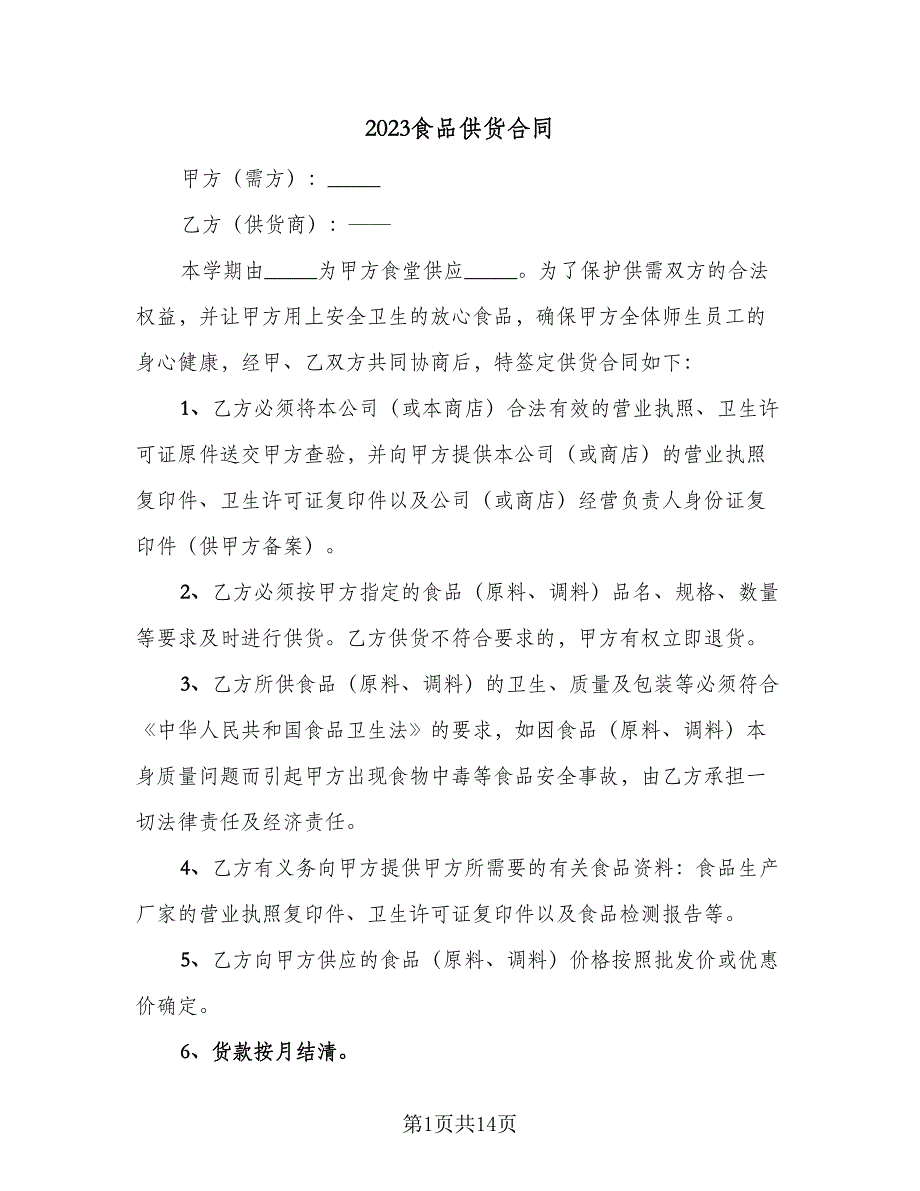 2023食品供货合同
甲方（需方）：_____
乙方（供货商）：——
本学期由_____为甲方食堂供应_____。为了保护供需双方的合法
权益，并让甲方用上安全卫生的放心食品，确保甲方全体师生员工的
身心健康，经甲、乙双方共同协商后，特签定供货合同如下：
1、乙方必须将本公司（或本商店）合法有效的营业执照、卫生许
可证原件送交甲方查验，并向甲方提供本公司（或商店）的营业执照
复印件、卫生许可证复印件以及公司（或商店）经营负责人身份证复
印件（供甲方备案）。
2、乙方必须按甲方指定的食品（原料、调料）品名、规格、数量
等要求及时进行供货。乙方供货不符合要求的，甲方有权立即退货。
3、乙方所供食品（原料、调料）的卫生、质量及包装等必须符合
《中华人民共和国食品卫生法》的要求，如因食品（原料、调料）本
身质量问题而引起甲方出现食物中毒等食品安全事故，由乙方承担一
切法律责任及经济责任。
4、乙方有义务向甲方提供甲方所需要的有关食品资料：食品生产
厂家的营业执照复印件、卫生许可证复印件以及食品检测报告等。
5、乙方向甲方供应的食品（原料、调料）价格按照批发价或优惠
价确定。
6、货款按月结清。
第1页共14页